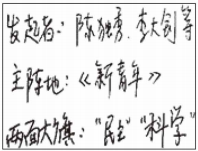 发起者：陈独秀、李大钊等
主阵地：《新青年》
两面大旗："民主""科学"